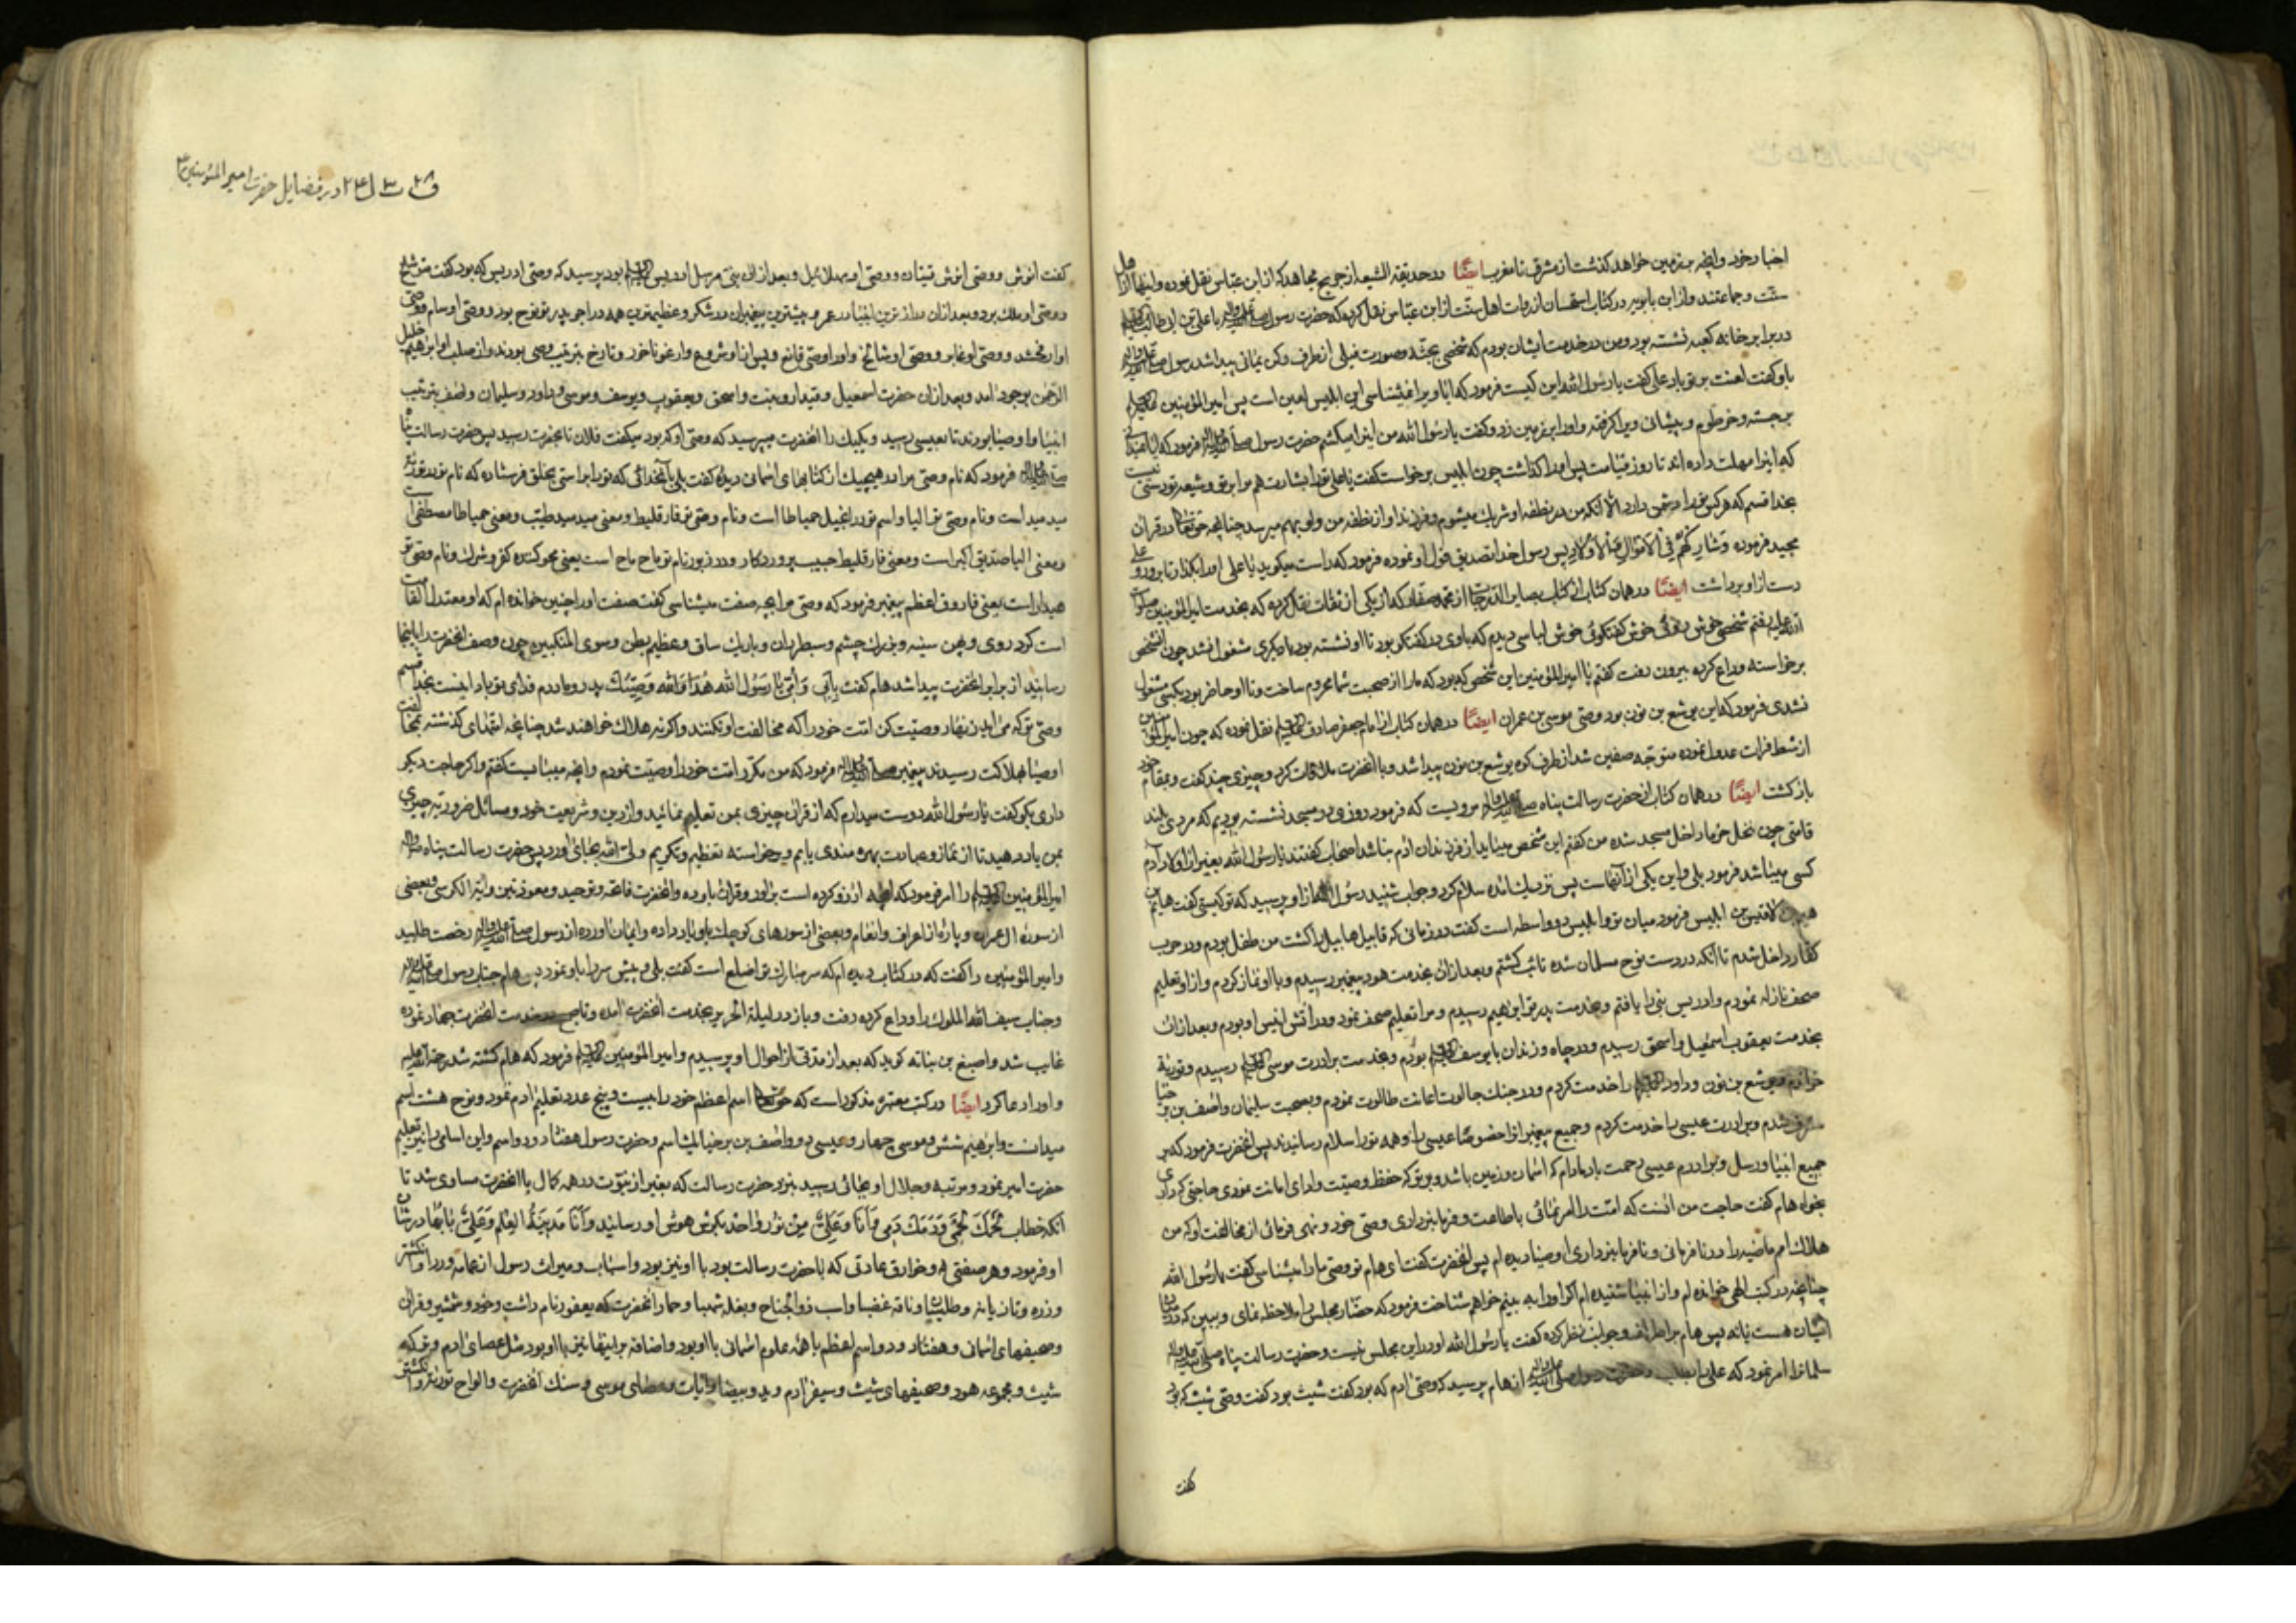 اخبار خود و آنچه بر زمین خواهد گذشت از مشرق تا مغرب ایضًا در حدیقة الشیعه از جریح مجاهد که از ابن عباس نقل نموده و اینها از اهل
سنّت و جماعتند و از ابن بابویه در کتاب از روات اهل سنّت از ابن عبّاس نقل کرده که حضرت رسول صلی الله علیه واله با علی بن ابی طالب علیه السلام
در برابر خانه کعبه نشسته بود و من در خدمت ایشان بودم که شخصی بجثّه و صورت فیلی از طرف رکن یمانی پیدا شد رسول صلی الله علیه واله
باو گفت لعنت بر تو باد علی گفت یا رسول الله این کیست فرمود که ایا او را نمیشناسی این ابلیس لعین است پس امیر المؤمنین علیه السلام
برجسته و خرطوم و پیشانی ویرا گرفته و او را بر زمین زد و گفت یا رسول الله من اینرا میکشم حضرت رسول صلی الله علیه واله فرمود که ایا نمیدانی
که اینرا مهلت داده اند تا روز قیامت پس او را گذاشت چون ابلیس برخواست گفت یا علی ترا بشارت دهم مرا بر تو و شیعه تو دستی نیست
بخدا قسم که هر کس ترا دشمن دارد الا آنکه من در نطفه او شریک میشوم و فرزند او از نطفه من و او بهم میرسد چنانچه حق تعالی در قران
مجید فرموده وَشَارِكْهُمْ فِی الْاَمْوَالِ وَالْاَوْلَادِ پس رسول خدا تصدیق قول او نموده فرمود که راست میگوید یا علی او را بگذار تا برود و علی
دست از او برداشت ایضًا در همان کتاب از کتاب بصایر الدرجات از محمد صفار که از یکی از ثقات نقل کرده که بخدمت امیر المؤمنین صلوات
الله علیه رفتم شخصی خوش روئی خوش گفتگوئی خوش لباسی دیدم که با وی در گفتگو بود تا او نشسته بود با دیگری مشغول نشد چون آن شخص
برخواسته وداع کرده بیرون رفت گفتم یا امیر المؤمنین این شخص که بود که ما را از صحبت شما محروم ساخت و تا او حاضر بود بکسی مشغول
نشدی فرمود که این یوشع بن نون بود وصی موسی بن عمران ایضًا در همان کتاب از امام جعفر صادق علیه السلام نقل نموده که چون امیر المؤمنین
از شط فرات عدول نموده متوجّه صفین شد از طرف کوه یوشع بن نون پیدا شد و با آنحضرت ملاقات کرد و چیزی چند گفت و بمقام خود
بازگشت ایضًا در همان کتاب از حضرت رسالت پناه صلی الله علیه واله مرویست که فرمود روزی در مسجد نشسته بودیم که مردی بلند
قامتی چون نخل خرما داخل مسجد شده من گفتم این شخص مینماید از فرزندان ادم نباشد اصحاب گفتند یا رسول الله بغیر از اولاد آدم
کسی میباشد فرمود بلی و این یکی از آنهاست پس نزدیک امده سلام کرد و جواب شنید رسول الله از او پرسید که تو کیستی گفت هام بن
هیم بن لاقیس بن ابلیس فرمود میان تو و ابلیس دو واسطه است گفت در زمانی که قابیل هابیل را کشت من طفل بودم و در حرب
کفار داخل شدم تا آنکه در دست نوح مسلمان شده تائب گشتم و بعد از ان بخدمت هود پیغمبر رسیدم و با او نماز کردم و از او تعلیم
صحف نازله نمودم و ادریس نبی را یافتم و بخدمت پدر تو ابراهیم رسیدم و مرا تعلیم صحف نمود و در اتش انیس او بودم و بعد از ان
بخدمت یعقوب اسمعیل و اسحق رسیدم و در چاه و زندان با یوسف علیه السلام بودم و بخدمت برادرت موسی علیه السلام رسیدم و توریة
خواندم و یوشع بن نون و داود علیه السلام را خدمت کردم و در جنک جالوت اعانت طالوت نمودم و بصحبت سلیمان و اصف بن برخیا
مشرف شدم و برادرت عیسی را خدمت کردم و جمیع پیغمبران خصوصًا عیسی را و همه تو را سلام رسانیدند پس آنحضرت فرمود که بر
جمیع انبیا و رسل و برادرم عیسی رحمت باد مادام که اسمان و زمین باشد و بر تو که حفظ وصیت و ادای امانت نمودی حاجتی که داری
بخواه هام گفت حاجت من انست که امتت را امر نمائی باطاعت و فرمانبرداری وصی خود و نهی فرمائی از مخالفت او که من
هلاک امم ماضیه را در نافرمانی و نافرمانبرداری اوصیا دیده ام پس آنحضرت گفت ای هام تو وصی ما را میشناسی گفت یا رسول الله
چنانچه در کتب الهی خوانده ام و از انبیا شنیده ام اگر او را به بینم خواهم شناخت فرمود که حضّار مجلس را ملاحظه نمای و ببین که در میان
ایشان هست یا نه پس هام بر اطراف و جوانب نظر کرده گفت یا رسول الله او در این مجلس نیست و حضرت رسالت پناه صلی الله علیه واله
سلمان را امر نمود که علی را بطلب و حضرت رسول صلی الله علیه واله از هام پرسید که وصی ادم که بود گفت شیث بود گفت وصی شیث که بود
گفت
در فضایل حضرت امیر المؤمنین ع
گفت انوش و وصی انوش قینان و وصی او مهلائیل و بعد از ان نبی مرسل ادریس علیه السلام بود پرسید که وصی ادریس که بود گفت متوشلخ
و وصی او ملک بود و بعد از ان دراز ترین انبیا در عمر و بیشترین پیغمبران در شکر و عظیمترین همه در اجر پدر تو نوح بود و وصی او سام و وصی
او ارفخشد و وصی او غابر و وصی او شالخ و او را وصی قانع و پس از او شروع و ارغو ناخور و تارخ بترتیب وصی بودند و از صلب او ابراهیم خلیل
الرّحمن بوجود امد و بعد از ان حضرت اسمعیل و قیدار و نبت و اسحق و یعقوب و یوسف و موسی و داود و سلیمان و اصف بترتیب
انبیا و اوصیا بودند تا بعیسی رسید و یکیک را آنحضرت میپرسید که وصی او که بود میگفت فلان تا بحضرت رسید پس حضرت رسالت پناه
صلی الله علیه واله فرمود که نام وصی مرا در هیچیک از کتابهای اسمانی دیده گفت بلی بآنخدائی که تو را براستی بخلق فرستاده که نام تو در توریة
مید مید است و نام وصی تو الیا و اسم تو در انجیل حمیاطا است و نام وصی تو فارقلیط و معنی مید مید طیّب و معنی حمیاطا مصطفی است
و معنی الیا صدیق اکبر است و معنی فارقلیط حبیب پروردگار و در زبور نام تو ماح ماح است یعنی محو کننده کفر و شرک و نام وصی تو
هیدار است یعنی فاروق اعظم پیغمبر فرمود که وصی مرا بچه صفت میشناسی گفت صفت او را چنین خوانده ام که او معتدل القامت
است گرد روی و پهن سینه و بزرک چشم و سطبر ران و باریک ساق و عظیم بطن و سوی المنکبین چون وصف آنحضرت را باینجا
رسانید از برابر آنحضرت پیدا شد هام گفت بِاَبی وَ اُمّی یا رَسُولَ الله هٰذا وَ الله وَصِیُّكَ پدر و مادرم فدای تو باد اینست بخدا قسم
وصی تو که می اید زنهار وصیت کن امت خود را که مخالفت او نکنند و اگر نه هلاک خواهند شد چنانچه امتهای گذشته بمخالفت
اوصیا بهلاکت رسیدند پیغمبر صلی الله علیه واله فرمود که من مکرّر امت خود را وصیّت نمودم و آنچه میبایست گفتم و اگر حاجت دیگر
داری بگو گفت یا رسول الله دوست میدارم که از قران چیزی بمن تعلیم نمائید و از دین و شریعت خود و مسائل ضروریه چیزی
بمن یاد دهید تا از نماز و عبادت بهره مندی یابم و برخواسته تعظیم و تکریم ولی الله بجای اورد پس حضرت رسالت پناه صلی الله علیه واله
امیر المؤمنین علیه السلام را امر فرمود که آنچه ارزو کرده است براور و قران باو ده و آنحضرت فاتحه و توحید و معوذتین و آیة الکرسی و بعضی
از سوره ال عمران و پاره از اعراف و انعام و بعضی از سورهای کوچک باو یاد داده و ایمان اورده از رسول صلی الله علیه واله رخصت طلبید
و امیر المؤمنین را گفت که در کتاب دیده ام که سر مبارک تو اصلع است گفت بلی و پیش سر را باو نمود پس هام جناب رسول صلی الله علیه واله
و جناب سیف الله الملوک را وداع کرده رفت و باز در لیلة الهریر بخدمت آنحضرت امده و تا صبح در خدمت آنحضرت جهاد نموده
غایب شد و اصبغ بن نباته گوید که بعد از مدتی از احوال او پرسیدم و امیر المؤمنین علیه السلام فرمود که هام کشته شد رحمة الله علیه
و او را دعا کرد ایضًا در کتب معتبره مذکور است که حق تعالی اسم اعظم خود را بیست و پنج عدد تعلیم ادم نمود و نوح هشت اسم
میدانست و ابراهیم شش و موسی چهار و عیسی دو و اصف بن برخیا یک اسم و حضرت رسول هفتاد و دو اسم و این اسامی را نیز تعلیم
حضرت امیر نمود و مرتبه و جلال او بجائی رسید نزد حضرت رسالت که بغیر از نبوّت در همه کمال با آنحضرت مساوی شد تا
آنکه خطاب لَحْمُكَ لَحْمی وَ دَمُكَ دَمی وَ اَنَا وَ عَلِیٌّ مِنْ نُورٍ وٰاحِدٍ بگوش هوش او رسانید وَ اَنَا مَدینَةُ الْعِلْمِ وَ عَلِیٌّ بٰابُهٰا در شان
او فرمود و هر صفتی و خوارق عادتی که با حضرت رسالت بود با او نیز بود و اسباب و میراث رسول از عمامه و ردا و انگشتر
و زره و تازیانه و طلیسان و ناقه غضبا و اسب ذو الجناح و بغله شهبا و حمار آنحضرت که یعفور نام داشت و خود و شمشیر و قران
و صحیفهای اسمانی و هفتاد و دو اسم اعظم با همه علوم اسمانی با او بود و اضافه بر اینها نیز با او بود مثل عصای ادم و ترکه
شیث و مجموعه هود و صحیفهای شیث و سیفر ادم و ید و بیضا و ایات و عصای موسی و سنک آنحضرت و الواح توریة و انگشتر